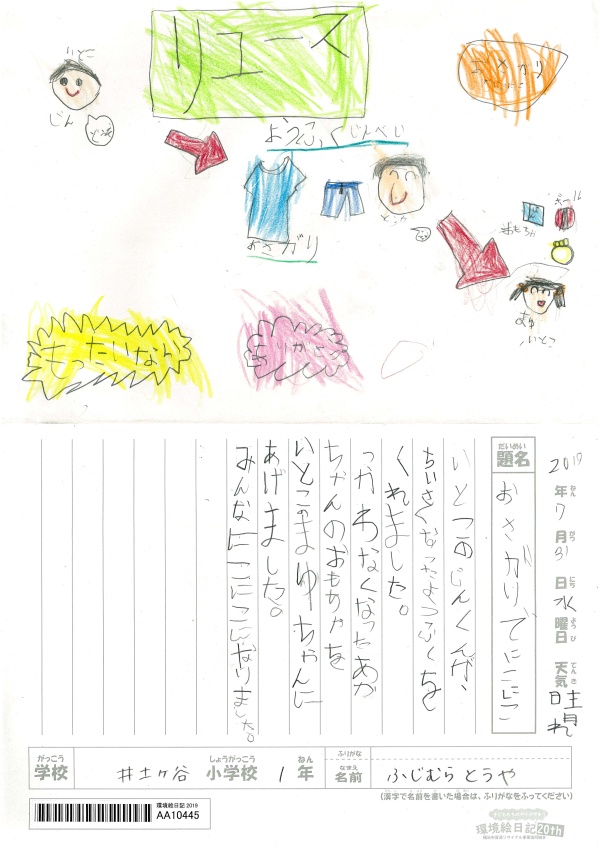 リユース
いとこ
じん
どうぞ
おさがり
ようふく じんべい
おさがり
とうや
ボール
おもちゃ
まゆ
いとこ
もったいない
だいめい
題名
おさがりでにこにこ
2019
年 ねん
7
月 がつ
31
日 にち
水
曜日 ようび
天気 てんき
晴れ
いとこのじんくんが、
ちいさくなったようふくを
くれました。
つかわなくなったあか
ちゃんのおもちゃを
いとこのまゆちゃんに
あげました。
みんなにこにこになりました。
がっこう
学校
井土ヶ谷
しょうがっこう
小学校
1
ねん
年
ふりがな
なまえ
名前
ふじむらとうや
(漢字で名前を書いた場合は、ふりがなをふってください)
環境絵日記 2019
AA10445
環境絵日記 20th